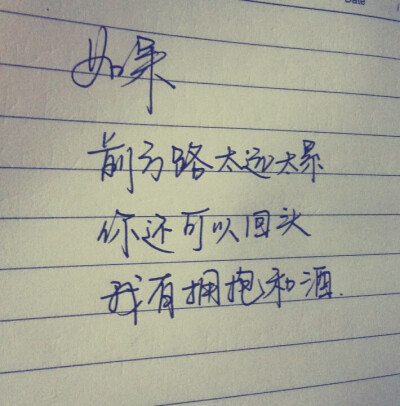 Date
如果
前方路太远太暴
你还可以回头
我有拥抱和酒.